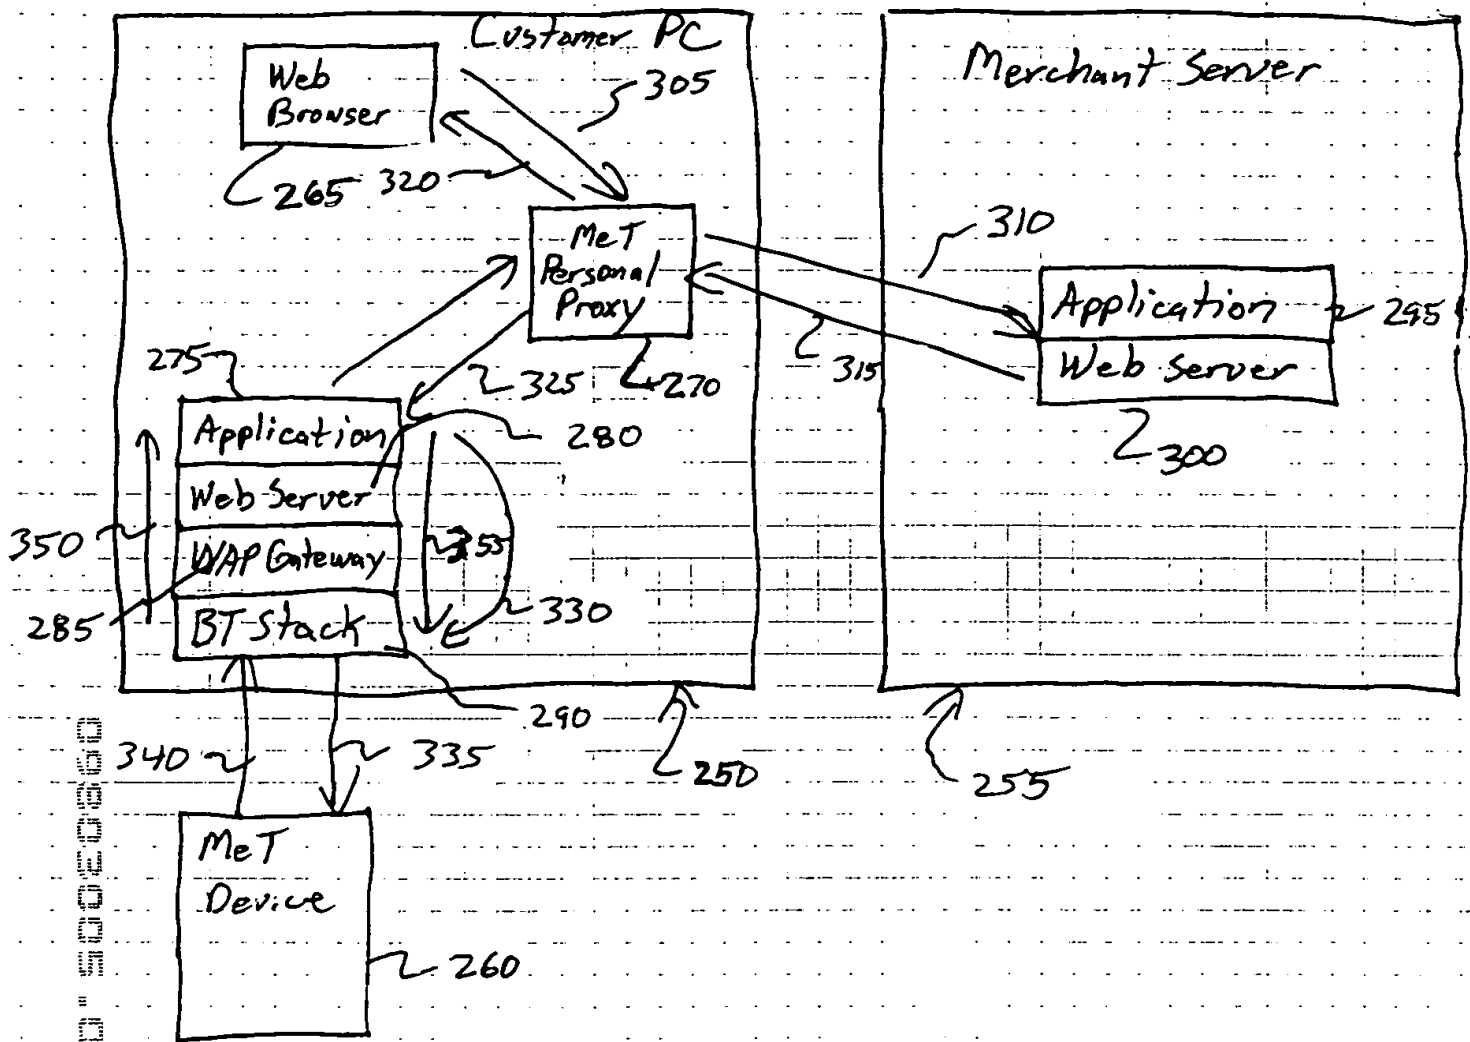 Customer PC
Merchant Server
Web
Browser
305
265
320
310
MeT
Personal
Proxy
Application
295
Web Server
315
300
275
325
270
Application
280
Web Server
350
WAP Gateway
285
BT Stack
330
290
340
335
250
255
MeT
Device
260